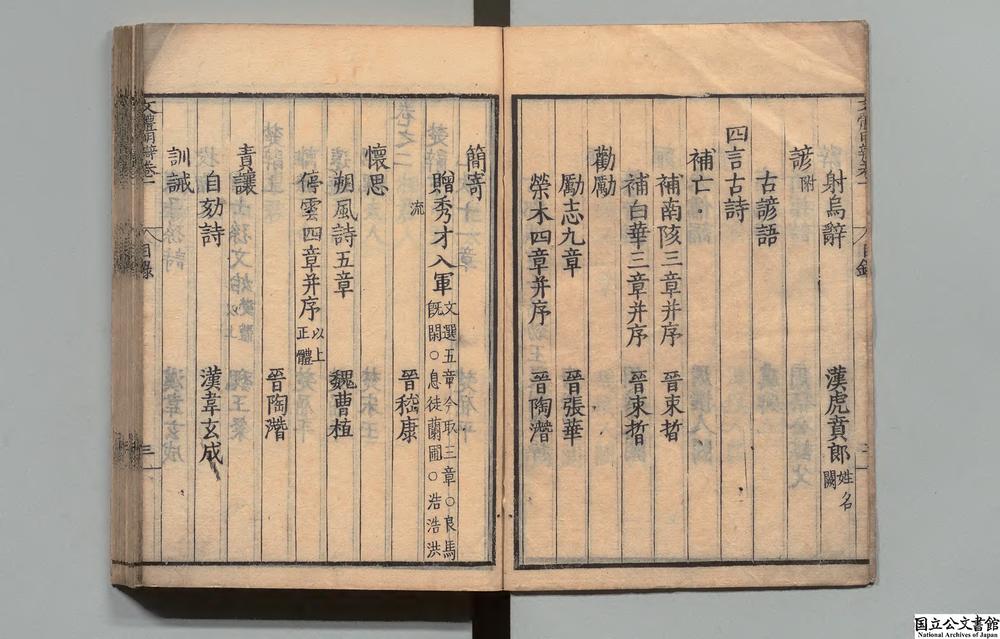 射烏辭 漢虎賁郎姓名闕
諺附
古諺語
四言古詩
補亡
補南陔三章并序 晉束晳
補白華三章并序 晉束晳
勸勵
勵志九章 晉張華
榮木四章并序 晉陶潛
簡寄
贈秀才入軍文選五章今取三章○良馬既閑○息徒蘭圃○浩浩洪
流 晉嵇康
懷思
朔風詩五章 魏曹植
停雲四章并序以上正體 晉陶潛
責讓
自劾詩 漢韋玄成
訓誡
文體明辯卷一 目錄 三
国立公文書館
National Archives of Japan